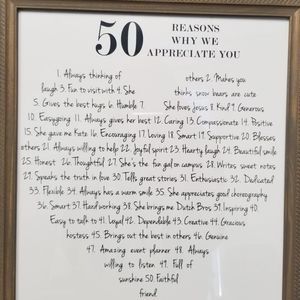 50 REASONS
WHY WE
APPRECIATE YOU
1. Always thinking of others 2. Makes you
laugh 3. Fun to visit with 4. She thinks snow bears are cute
5. Gives the best hugs 6. Humble 7. She loves Jesus 8. Kind 9. Generous
10. Easygoing 11. Always gives her best 12. Caring 13. Compassionate 14. Positive
15. She gave me Kate 16. Encouraging 17. Loving 18. Smart 19. Supportive 20. Blesses
others 21. Always willing to help 22. Joyful spirit 23. Hearty laugh 24. Beautiful smile
25. Honest 26. Thoughtful 27. She's the fun gal on campus 28. Writes sweet notes
29. Speaks the truth in love 30. Tells great stories 31. Enthusiastic 32. Dedicated
33. Flexible 34. Always has a warm smile 35. She appreciates good choreography
36. Smart 37. Hard working 38. She brings me Dutch Bros 39. Inspiring 40.
Easy to talk to 41. Loyal 42. Dependable 43. Creative 44. Gracious
hostess 45. Brings out the best in others 46. Genuine
47. Amazing event planner 48. Always
willing to listen 49. Full of
sunshine 50. Faithful
friend